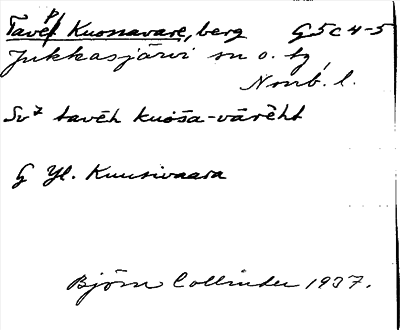 Tavep Kuossavare, berg G5c4-5
Jukkasjärvi sn o. tg,
Norrb. l.
Sv⁷ tavēh kuōša-vārēht
G Yl. Kuusivaara
Björn Collinder 1937.